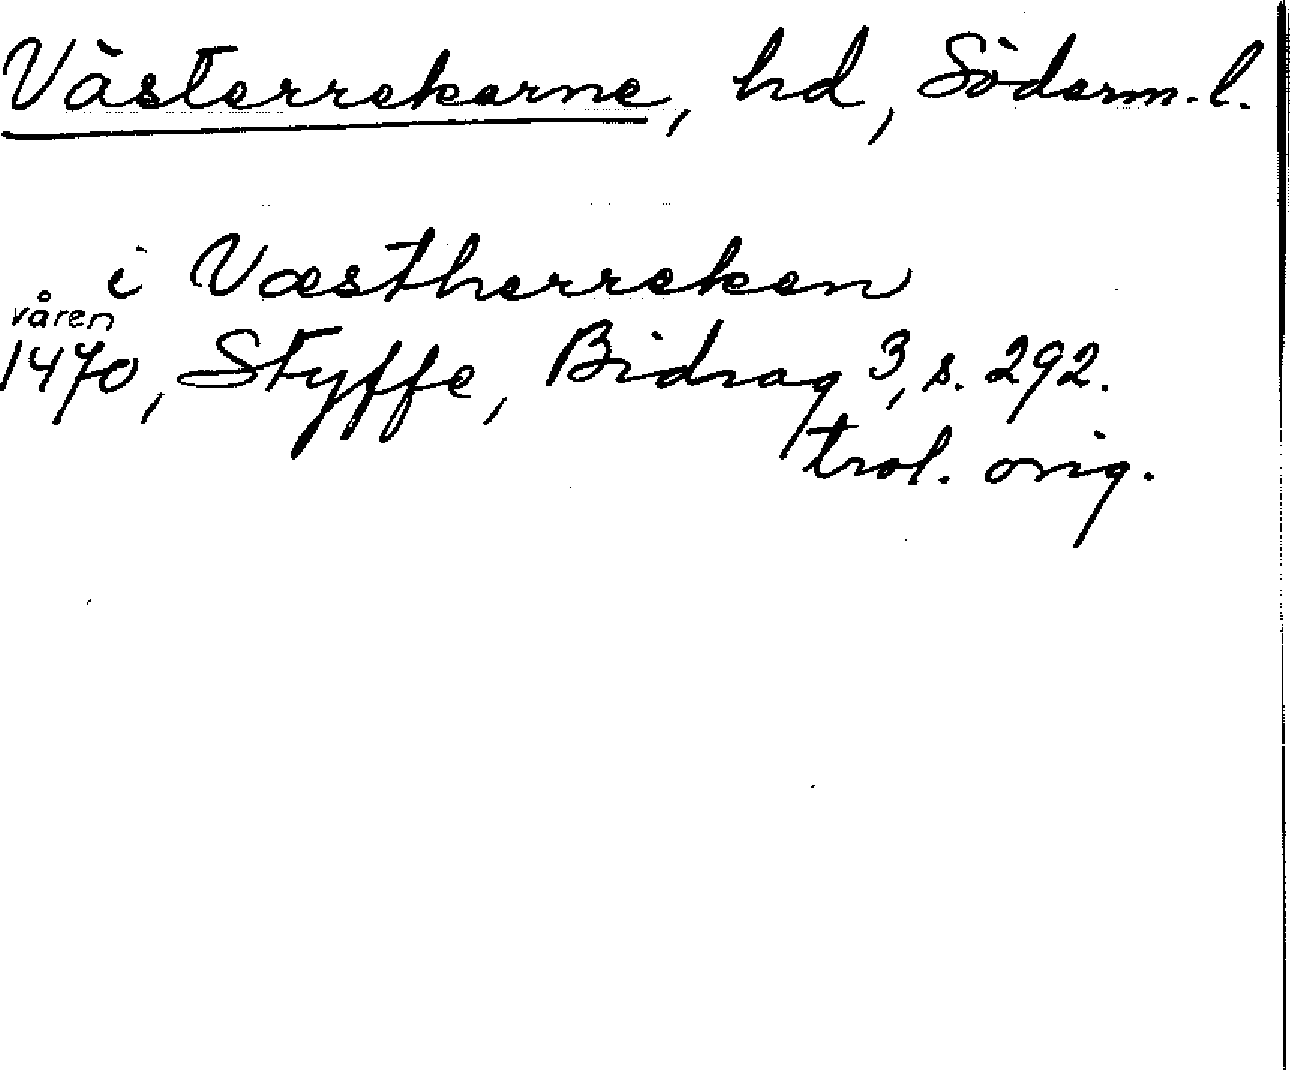 Västerrekarne, hd, Söderm. l.
i Væstherreken
våren
1470, Styffe, Bidrag 3, s. 292.
trol. orig.